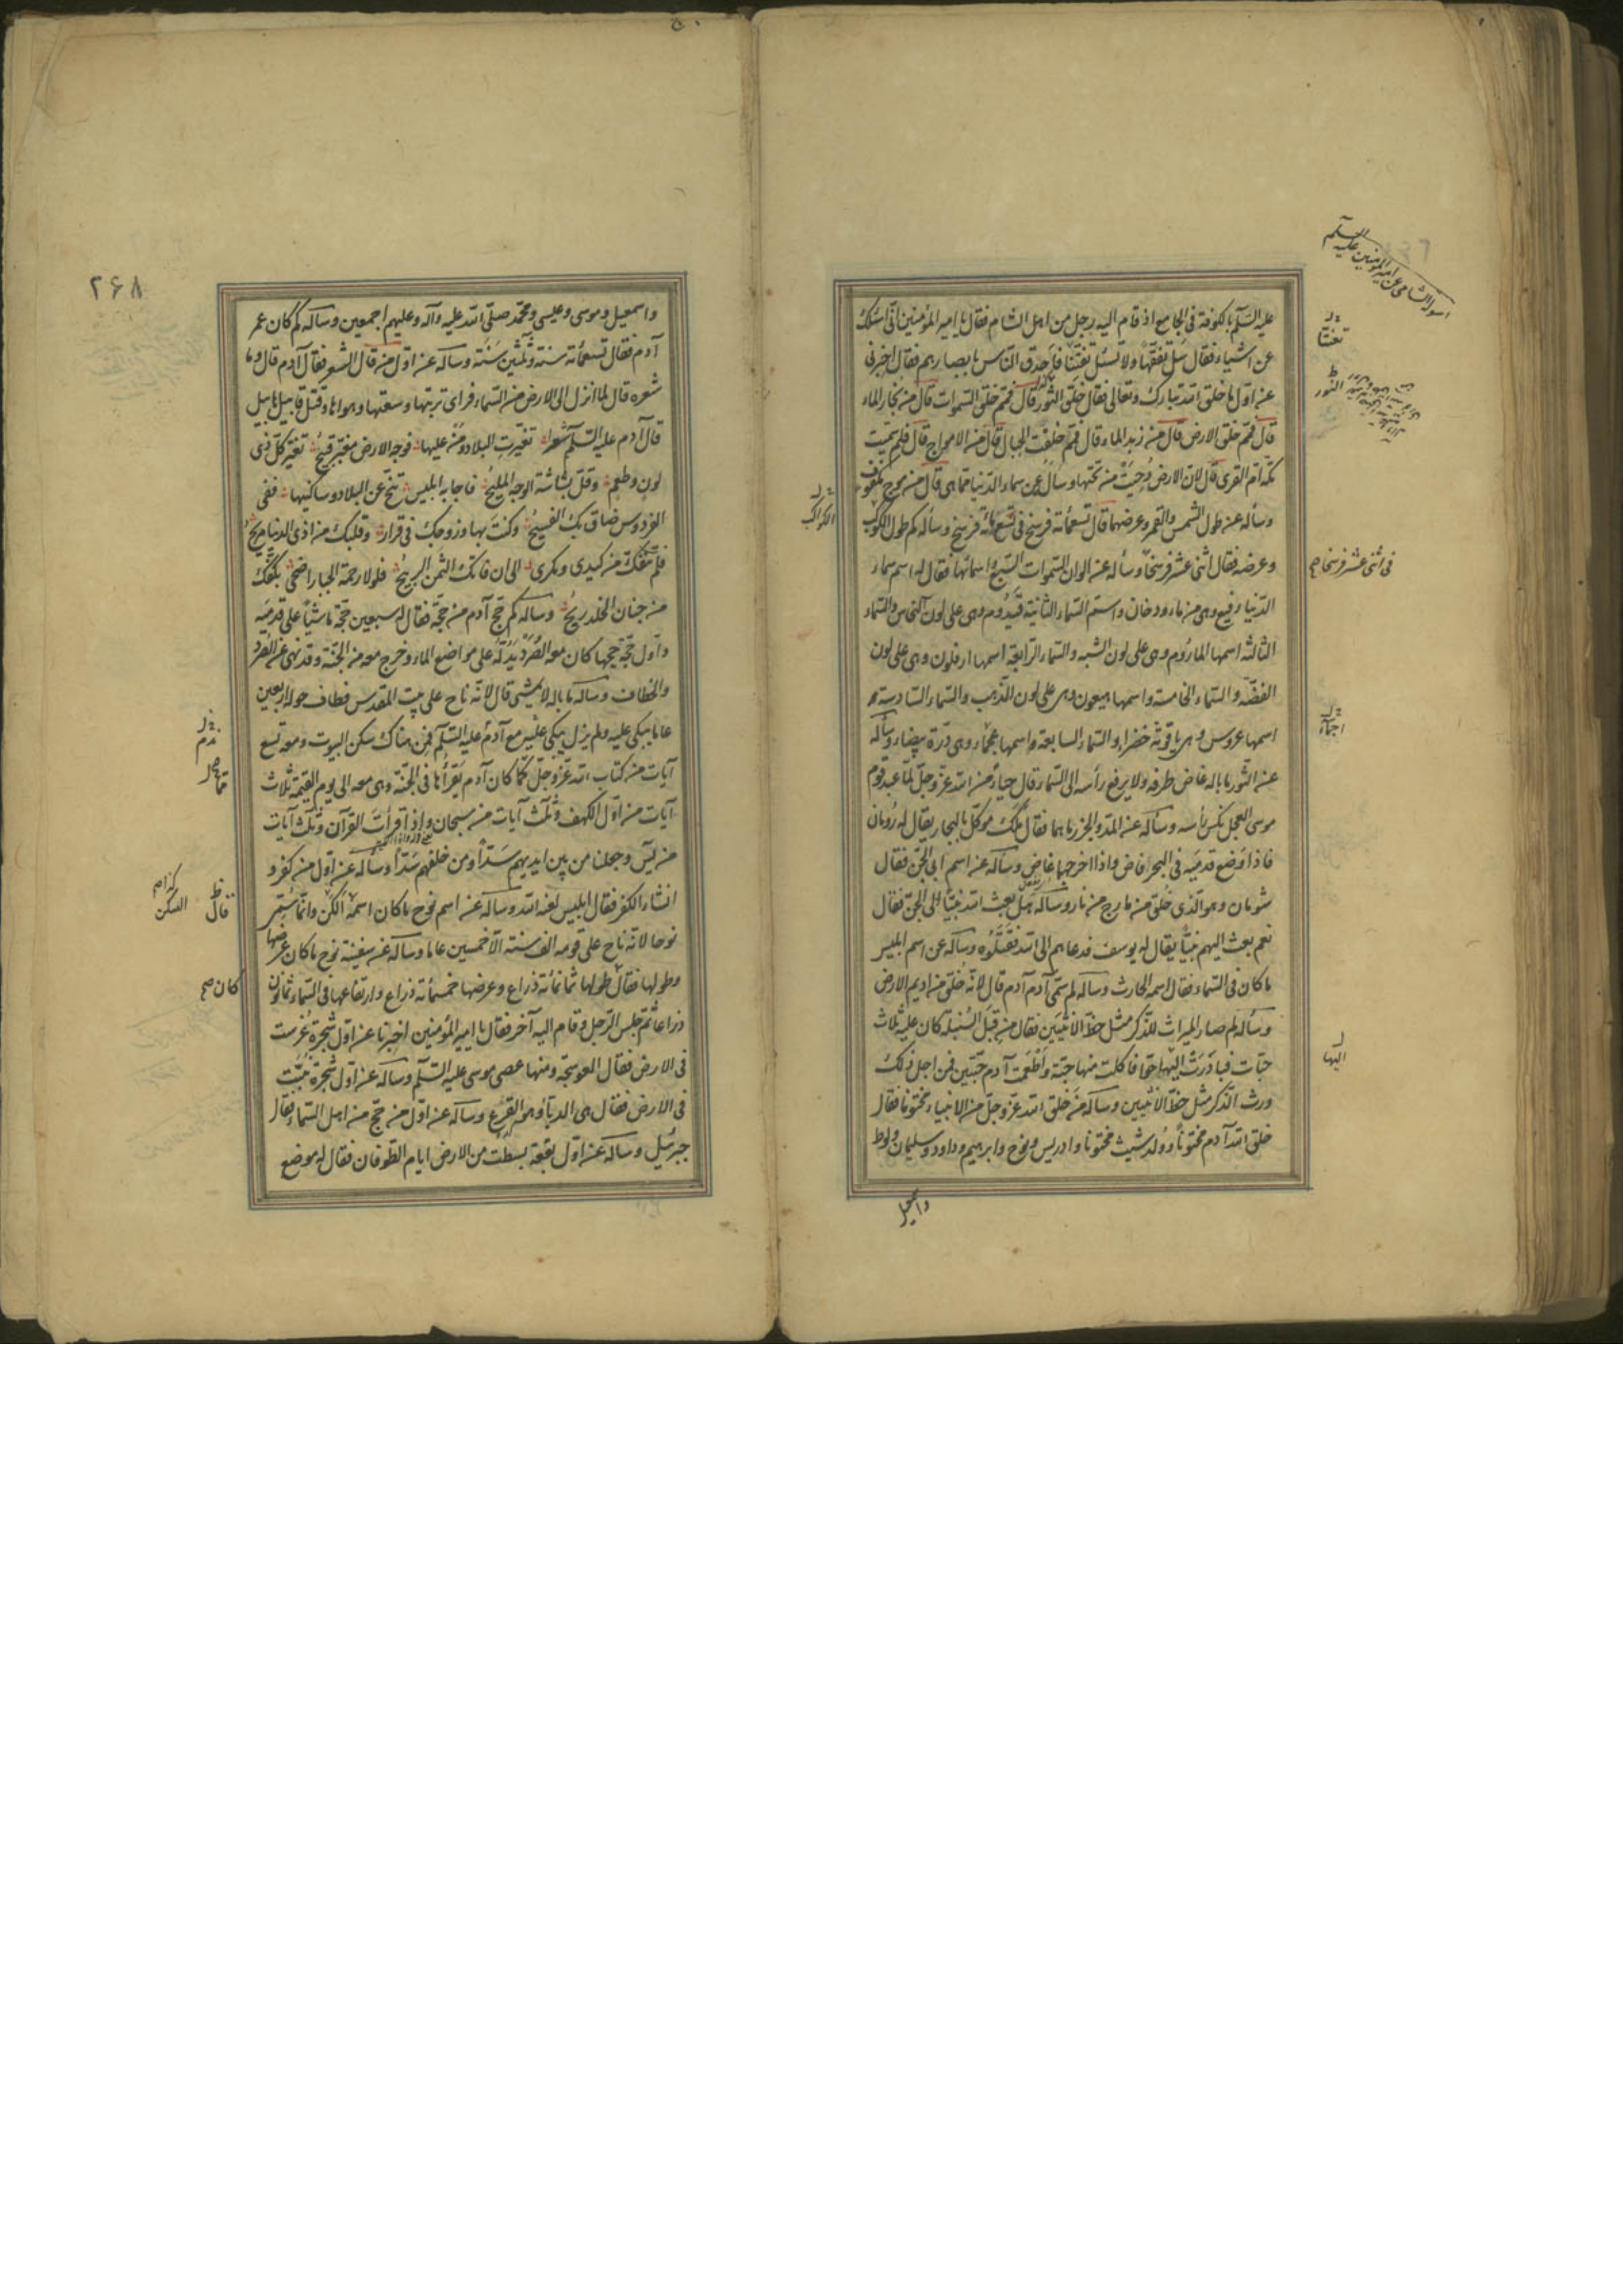 عليه السلم بالكوفة في الجامع اذ قام اليه رجل من اهل الشام فقال يا امير المؤمنين اني اسئلك
عن اشياء فقال سل تفقها ولا تسئل تعنتا فاحدق الناس بابصارهم فقال اخبرني
عن اول ما خلق الله تبارك وتعالى فقال خلق النور قال فمم خلق السموات قال من بخار الماء
قال فمم خلق الارض قال من زبد الماء قال فمم خلقت الجبال قال من الامواج قال فلم سميت
مكة ام القرى قال لان الارض دحيت من تحتها وسأل عن سماء الدنيا مما هي قال من موج مكفوف
وسأله عن طول الشمس والقمر وعرضهما قال تسعمائة فرسخ في تسعمائة فرسخ وسأله كم طول الكوكب
وعرضه فقال اثنى عشر فرسخا وسأله عن الوان السموات السبع واسمائها فقال له اسم سماء
الدنيا رفيع وهي من ماء ودخان واسم السماء الثانية قيدوم وهي على لون النحاس والسماء
الثالثة اسمها الماروم وهي على لون الشبه والسماء الرابعة اسمها ارفلون وهي على لون
الفضة والسماء الخامسة واسمها هيعون وهي على لون الذهب والسماء السادسة
اسمها عروس وهي ياقوتة خضراء والسماء السابعة واسمها عجماء وهي درة بيضاء وسأله
عن الثور ما باله غاض طرفه ولا يرفع رأسه الى السماء قال حياء من الله عز وجل لما عبد قوم
موسى العجل نكس رأسه وسأله عن المد والجزر ما هما فقال ملك موكل بالبحار يقال له رومان
فاذا وضع قدميه في البحر فاض واذا اخرجهما غاض وسأله عن اسم ابي الجن فقال
شومان وهو الذي خلق من مارج من نار وسأله هل بعث الله نبيا الى الجن فقال
نعم بعث اليهم نبيا يقال له يوسف فدعاهم الى الله فقتلوه وسأله عن اسم ابليس
ما كان في السماء فقال اسمه الحارث وسأله لم سمي آدم آدم قال لانه خلق من اديم الارض
وسأله لم صار الميراث للذكر مثل حظ الانثيين فقال من قبل السنبلة كان عليه ثلاث
حبات فبادرت اليها حوا فاكلت منها حبة واطعمت آدم حبتين فمن اجل ذلك
ورث الذكر مثل حظ الانثيين وسأله من خلق الله عز وجل من الانبياء مختونا فقال
خلق الله آدم مختونا وولد شيث مختونا وادريس ونوح وابرهيم وداود وسليمان ولوط
واسمعيل
تعنتا
النور
في اثنى عشر فرسخا صح
اليها
الكواكب
٢۶٨
واسمعيل وموسى وعيسى ومحمد صلى الله عليه وآله وعليهم اجمعين وسأله كم كان عمر
آدم فقال تسعمائة سنة وثلثين سنة وسأله عن اول من قال الشعر فقال آدم قال وما
شعره قال لما انزل الى الارض من السماء فراى تربتها وسعتها وهواها وقتل قابيل هابيل
قال آدم عليه السلم شعرا تغيرت البلاد ومن عليها فوجه الارض مغبر قبيح تغير كل ذي
لون وطعم وقل بشاشة الوجه المليح فاجابه ابليس تنح عن البلاد وساكنيها ففي
الفردوس ضاق بك الفسيح وكنت بها وزوجك في قرار وقلبك من اذى الدنيا مريح
فلم تنفك من كيدي ومكري الى ان فاتك الثمن الربيح فلولا رحمة الجبار اضحى بكفك
من جنان الخلد ريح وسأله كم حج آدم من حجة فقال له سبعين حجة ماشيا على قدميه
واول حجة حجها كان معه الصرد يدله على مواضع الماء وخرج معه من الجنة وقد نهي عن الصرد
والخطاف وسأله ما باله لا يمشي قال لانه ناح على بيت المقدس فطاف حوله اربعين
عاما يبكي عليه ولم يزل يبكي عليه مع آدم عليه السلم فمن هناك سكن البيوت ومعه تسع
آيات من كتاب الله عز وجل مما كان آدم يقرأها في الجنة وهي معه الى يوم القيمة ثلاث
آيات من اول الكهف وثلث آيات من سبحان واذا قرأت القرآن وثلث آيات
من يس وجعلنا من بين ايديهم سدا ومن خلفهم سدا وسأله عن اول من كفر و
انشاء الكفر فقال ابليس لعنه الله وسأله عن اسم نوح ما كان اسمه السكن وانما سمي
نوحا لانه ناح على قومه الف سنة الا خمسين عاما وسأله عن سفينة نوح ما كان عرضها
وطولها فقال طولها ثمانمائة ذراع وعرضها خمسمائة ذراع وارتفاعها في السماء ثمانون
ذراعا ثم جلس الرجل وقام اليه آخر فقال يا امير المؤمنين اخبرنا عن اول شجرة غرست
في الارض فقال العوسجة ومنها عصى موسى عليه السلم وسأله عن اول شجرة نبتت
في الارض فقال هي الدباء وهو القرع وسأله عن اول من حج من اهل السماء فقال
جبرئيل وسأله عن اول بقعة بسطت من الارض ايام الطوفان فقال له موضع
فقال
السكن
كان صح